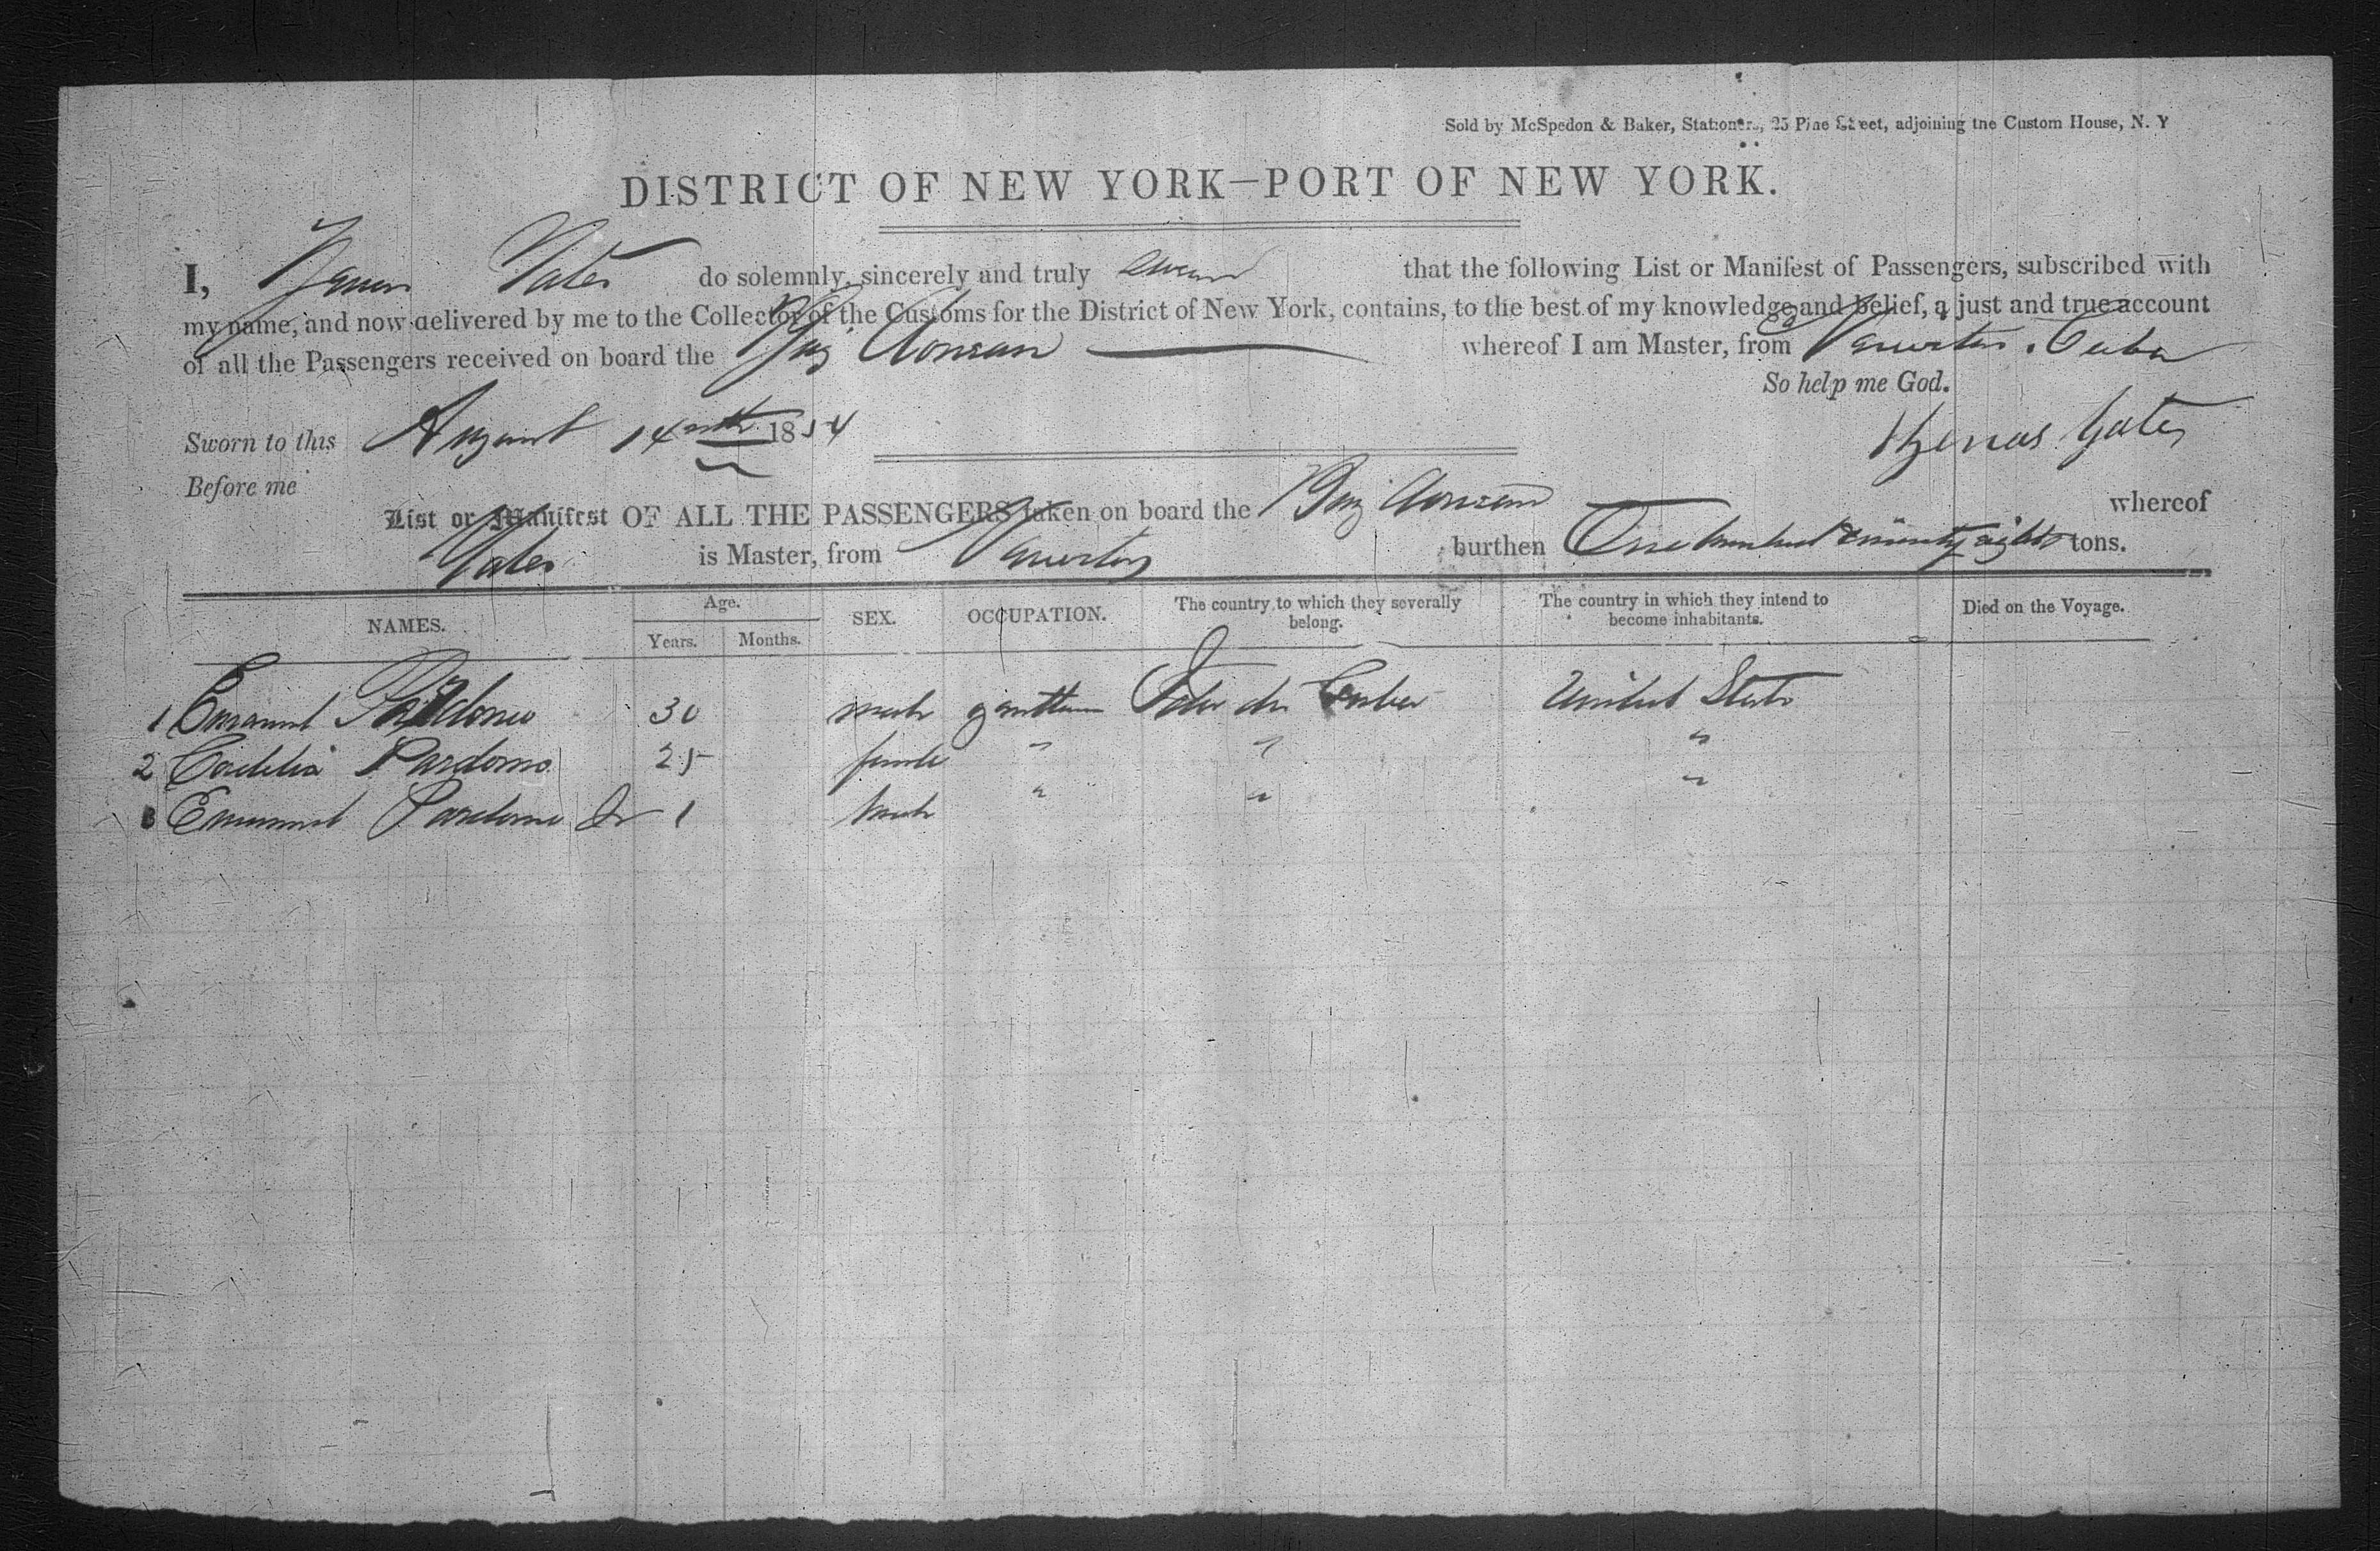 Sold by McSpedon & Baker, Stationers, 25 Pine Street, adjoining the Custom House, N. Y
DISTRICT OF NEW YORK—PORT OF NEW YORK.
I, Yates do solemnly, sincerely and truly swear that the following List or Manifest of Passengers, subscribed with
my name, and now delivered by me to the Collector of the Customs for the District of New York, contains, to the best of my knowledge and belief, a just and true account
of all the Passengers received on board the Brig whereof I am Master, from Cuba
So help me God.
Sworn to this August 14th 1854
Yates
Before me
List or Manifest OF ALL THE PASSENGERS taken on board the Brig whereof
Yates is Master, from burthen One hundred ninety eight tons.
NAMES. Age. SEX. OCCUPATION. The country to which they severally belong. The country in which they intend to become inhabitants. Died on the Voyage.
Years. Months.
1 Emanuel Pardomo 30 male gentleman Cuba United States
2 Cordelia Pardomo 25 female " " "
3 Emanuel Pardomo Jr 1 male " " "